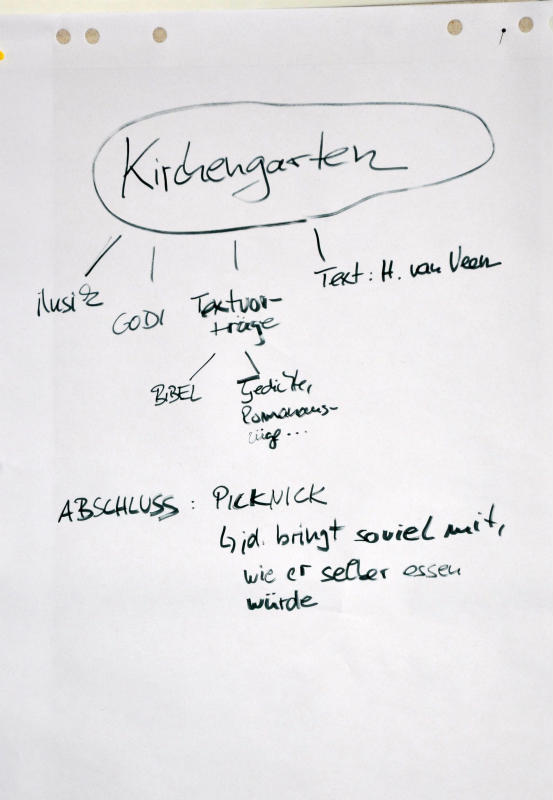 Kirchengarten
GODI
Textvor-
träge
Text: H. van Veen
BIBEL
Gedichte,
Romanaus-
züge...
ABSCHLUSS: PICKNICK
↳ jd. bringt soviel mit,
wie er selber essen
würde